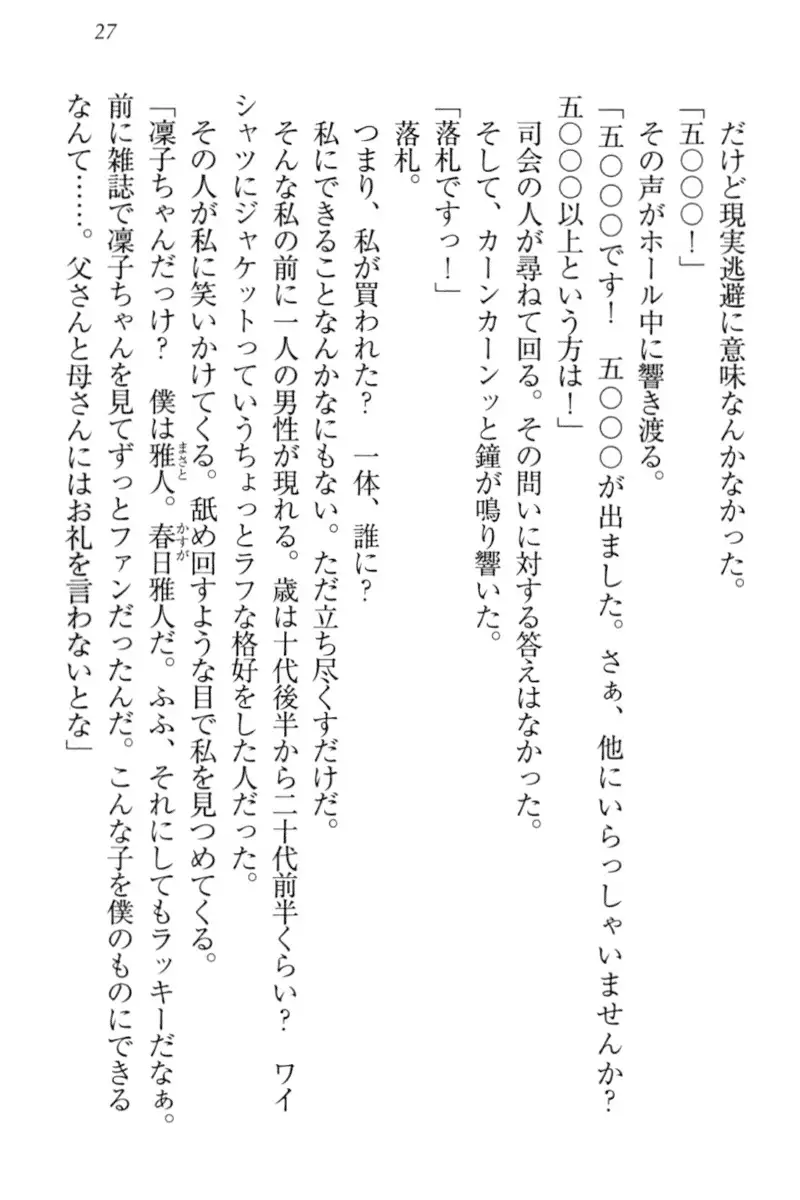 27
だけど現実逃避に意味なんかなかった。
「五〇〇〇！」
その声がホール中に響き渡る。
「五〇〇〇です！　五〇〇〇が出ました。さぁ、他にいらっしゃいませんか？
五〇〇〇以上という方は！」
司会の人が尋ねて回る。その問いに対する答えはなかった。
そして、カーンカーンッと鐘が鳴り響いた。
「落札ですっ！」
落札。
つまり、私が買われた？　一体、誰に？
私にできることなんかなにもない。ただ立ち尽くすだけだ。
そんな私の前に一人の男性が現れる。歳は十代後半から二十代前半くらい？　ワイ
シャツにジャケットっていうちょっとラフな格好をした人だった。
その人が私に笑いかけてくる。舐め回すような目で私を見つめてくる。
「凜子ちゃんだっけ？　僕は雅人。春日雅人だ。ふふ、それにしてもラッキーだなぁ。
まさと
かすが
前に雑誌で凜子ちゃんを見てずっとファンだったんだ。こんな子を僕のものにできる
なんて……。父さんと母さんにはお礼を言わないとな」